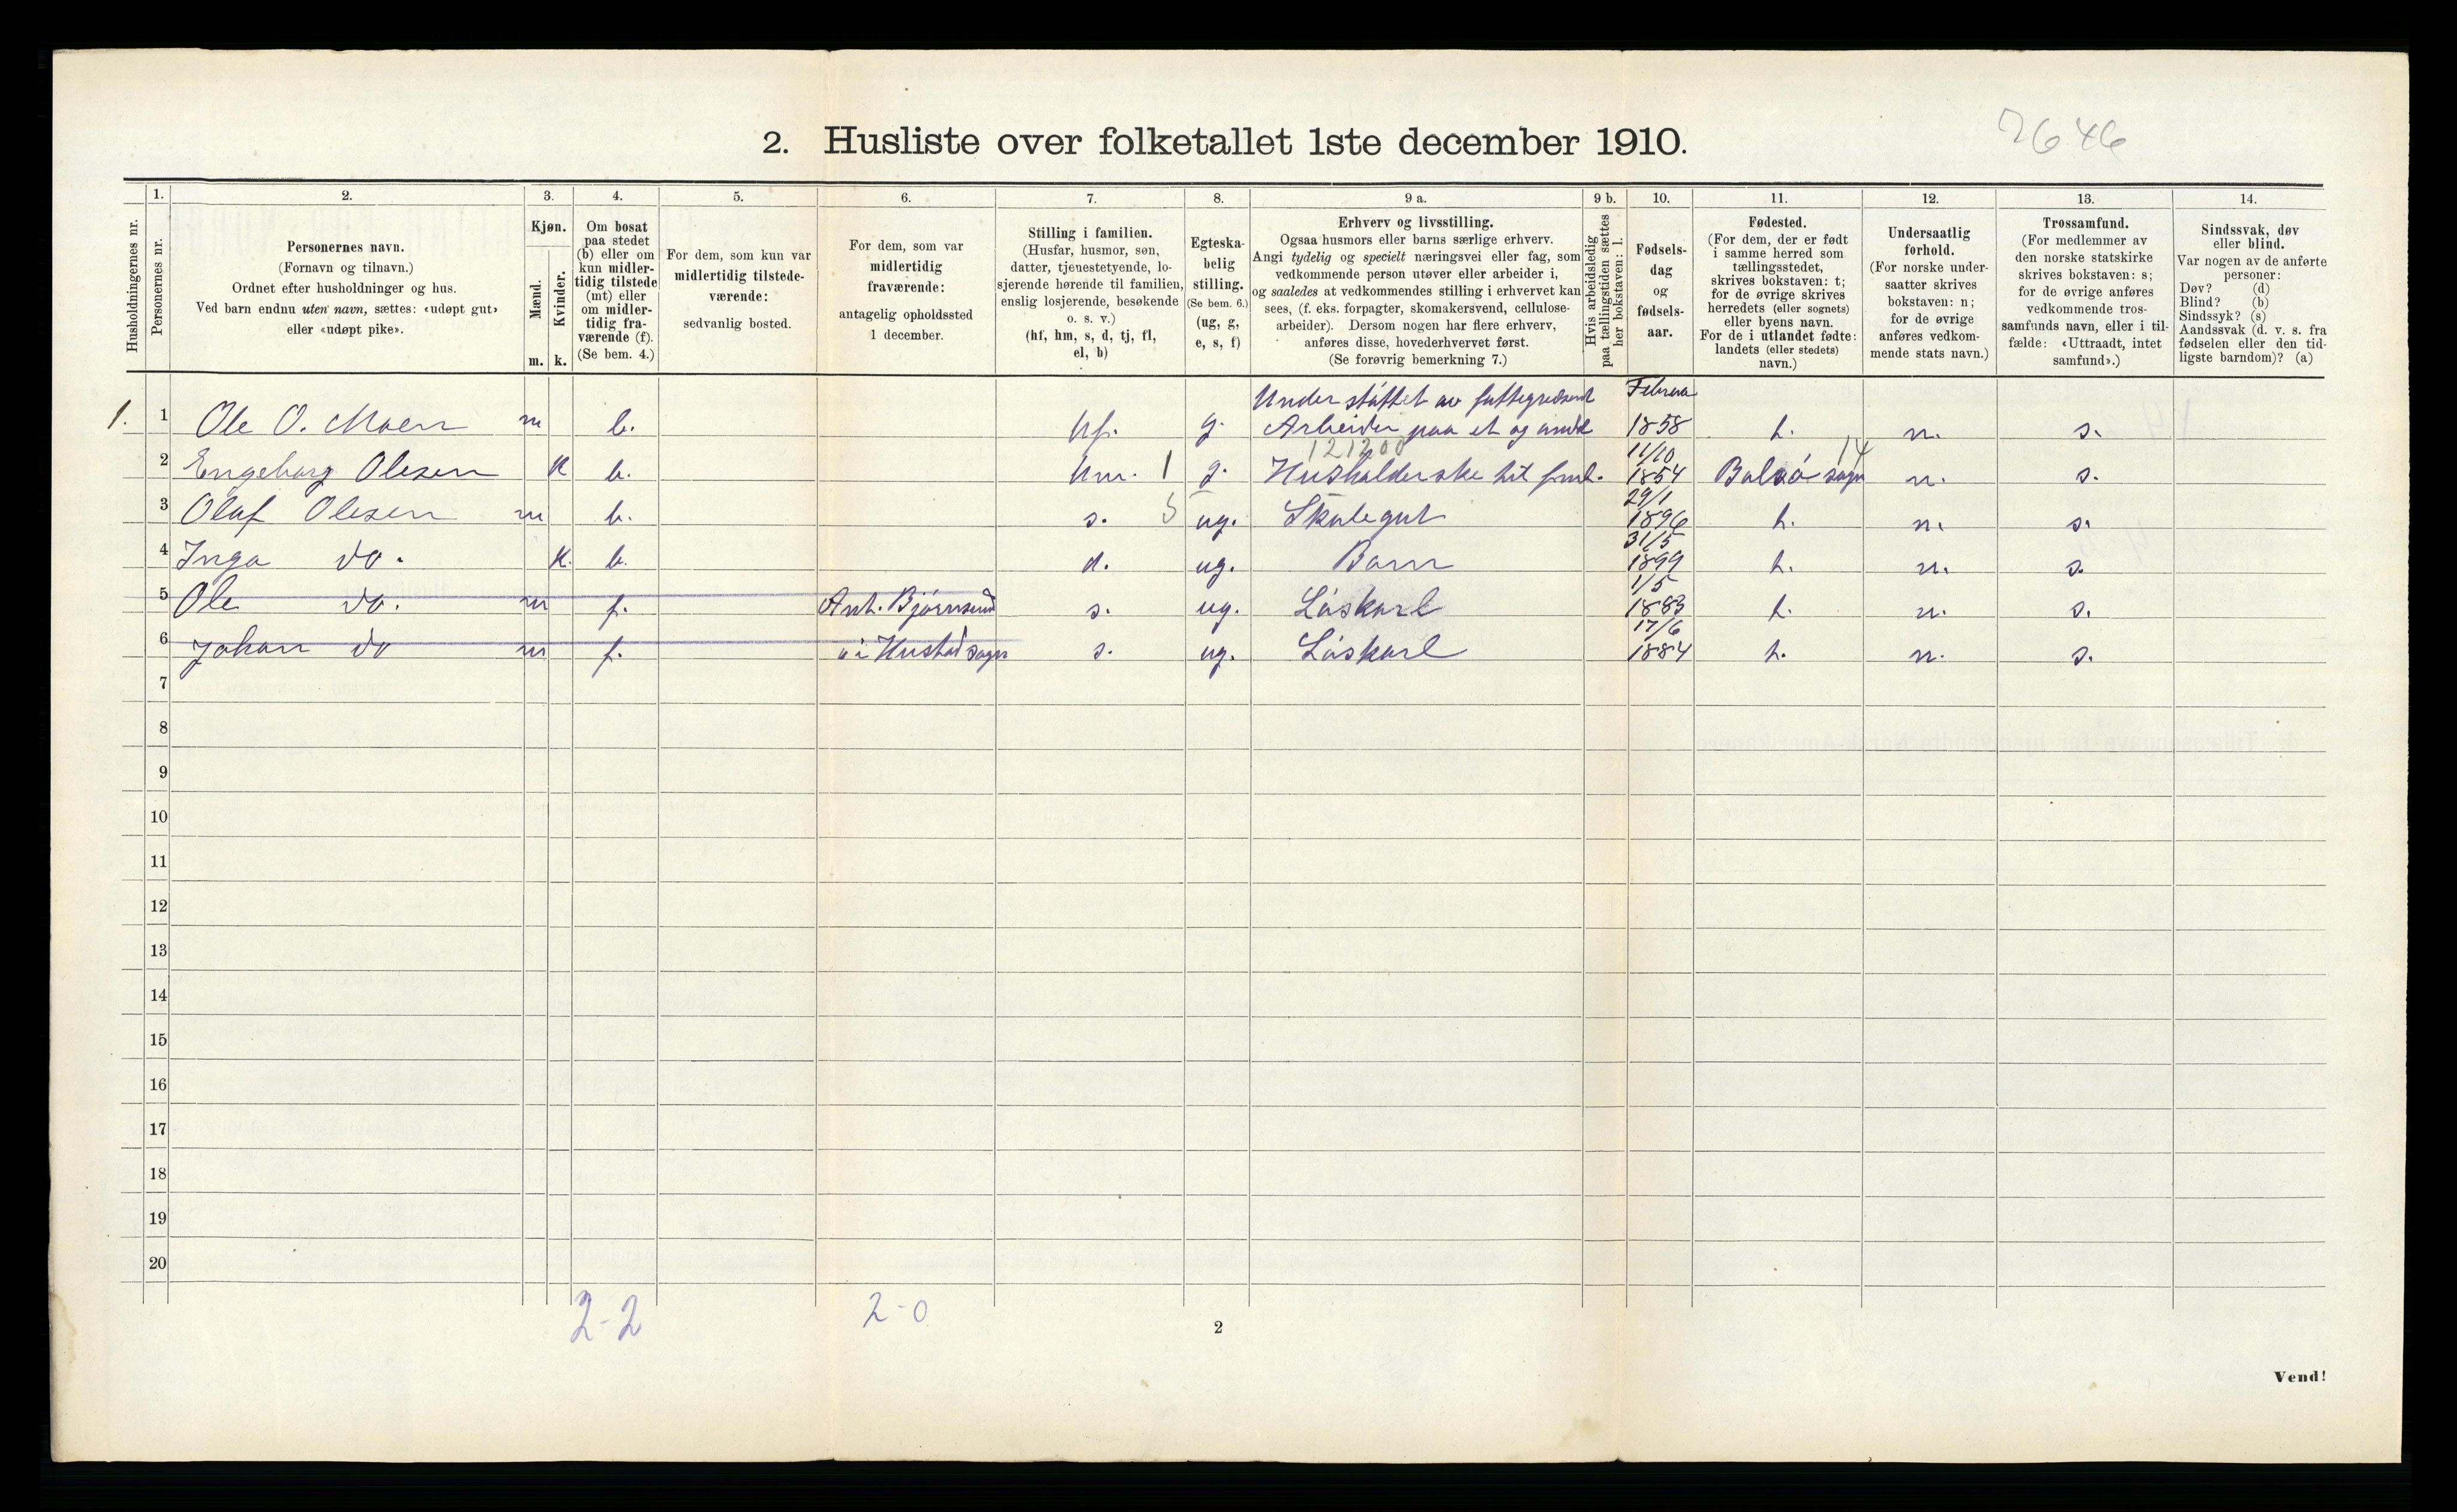 2646
2. Husliste over folketallet 1ste december 1910.
Husholdningernes nr.
1.
Personernes nr.
2.
Personernes navn.
(Fornavn og tilnavn.)
Ordnet efter husholdninger og hus.
Ved barn endnu uten navn, sættes: «udøpt gut»
eller «udøpt pike».
3.
Kjøn.
Mænd.
Kvinder.
m. k.
4.
Om bosat
paa stedet
(b) eller om
kun midler-
tidig tilstede
(mt) eller
om midler-
tidig fra-
værende (f).
(Se bem. 4.)
5.
For dem, som kun var
midlertidig tilstede-
værende:
sedvanlig bosted.
6.
For dem, som var
midlertidig
fraværende:
antagelig opholdssted
1 december.
7.
Stilling i familien.
(Husfar, husmor, søn,
datter, tjenestetyende, lo-
sjerende hørende til familien,
enslig losjerende, besøkende
o. s. v.)
(hf, hm, s, d, tj, fl,
el, b)
8.
Egteska-
belig
stilling.
(Se bem. 6.)
(ug, g,
e, s, f)
9 a.
Erhverv og livsstilling.
Ogsaa husmors eller barns særlige erhverv.
Angi tydelig og specielt næringsvei eller fag, som
vedkommende person utøver eller arbeider i,
og saaledes at vedkommendes stilling i erhvervet kan
sees, (f. eks. forpagter, skomakersvend, cellulose-
arbeider). Dersom nogen har flere erhverv,
anføres disse, hovederhvervet først.
(Se forøvrig bemerkning 7.)
9 b.
Hvis arbeidsledig
paa tællingstiden sættes
her bokstaven: l.
10.
Fødsels-
dag
og
fødsels-
aar.
11.
Fødested.
(For dem, der er født
i samme herred som
tællingsstedet,
skrives bokstaven: t;
for de øvrige skrives
herredets (eller sognets)
eller byens navn.
For de i utlandet fødte:
landets (eller stedets)
navn.)
12.
Undersaatlig
forhold.
(For norske under-
saatter skrives
bokstaven: n;
for de øvrige
anføres vedkom-
mende stats navn.)
13.
Trossamfund.
(For medlemmer av
den norske statskirke
skrives bokstaven: s;
for de øvrige anføres
vedkommende tros-
samfunds navn, eller i til-
fælde: «Uttraadt, intet
samfund».)
14.
Sindssvak, døv
eller blind.
Var nogen av de anførte
personer:
Døv? (d)
Blind? (b)
Sindssyk? (s)
Aandssvak (d. v. s. fra
fødselen eller den tid-
ligste barndom)? (a)
Understøttet av
1. 1 Ole O. Moen m b. hf. g. Arbeider paa et og andet 1858 t. n. s.
121200 11/10 14
2 Engeborg Olesen k b. hm. 1 g. Husholderske 1854 Bolsø sogn n. s.
29/1
3 Olaf Olesen m b. s. 5 ug. Skolegut 1896 t. n. s.
31/5
4 Inga do. k. b. d. ug. Barn 1899 t. n. s.
1/5
5 Ole do. m f. Ant. Bjørnsund s. ug. Løskarl 1883 t. n. s.
17/6
6 Johan do m f. i Hustad sogn s. ug. Løskarl 1884 t. n. s.
7
8
9
10
11
12
13
14
15
16
17
18
19
20
2-2 2-0
2
Vend!